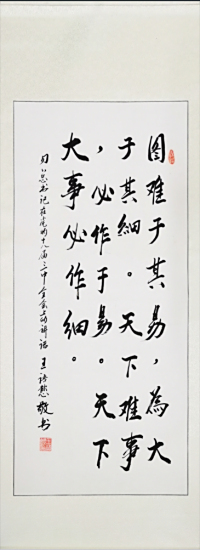 图难于其易，為大
于其细。天下难事
，必作于易。天下
大事必作细。
习总书记在党的十九届三中全会上的讲话 王 敬书